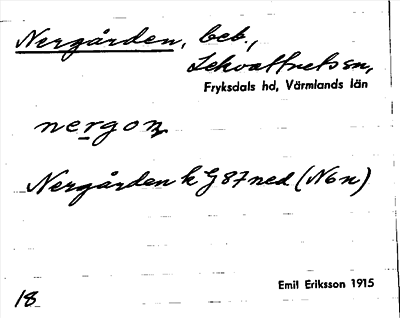 Nergården, beb.,
Lekvattnets sn,
Fryksdals hd, Värmlands län
nergoɳ
Nergården k G 87 ned (N6n)
Emil Eriksson 1915
18